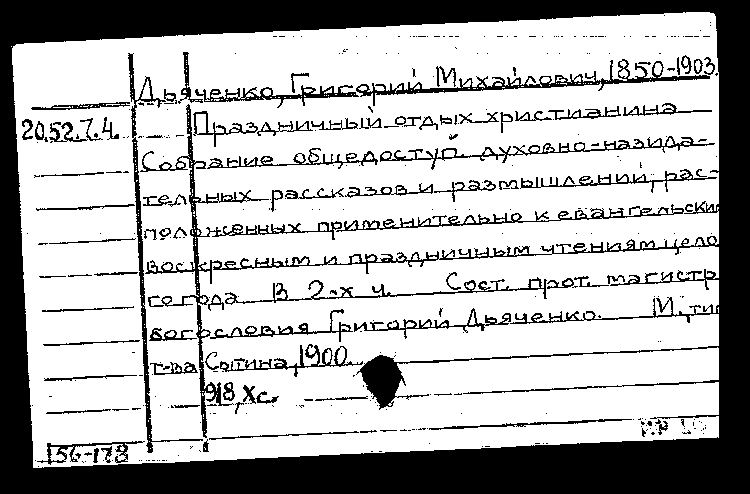 Дьяченко, Григорий Михайлович, 1850-1903.
20.52.7.4. Праздничный отдых христианина
Собрание общедоступ. духовно-назида-
тельных рассказов и размышлений, рас-
положенных применительно к евангельски
воскресным и праздничным чтениям цело
го года В 2-х ч. Сост. прот. магистр
богословия Григорий Дьяченко. М., ти
т-ва Сытина, 1900.
918, Хс.
156-178